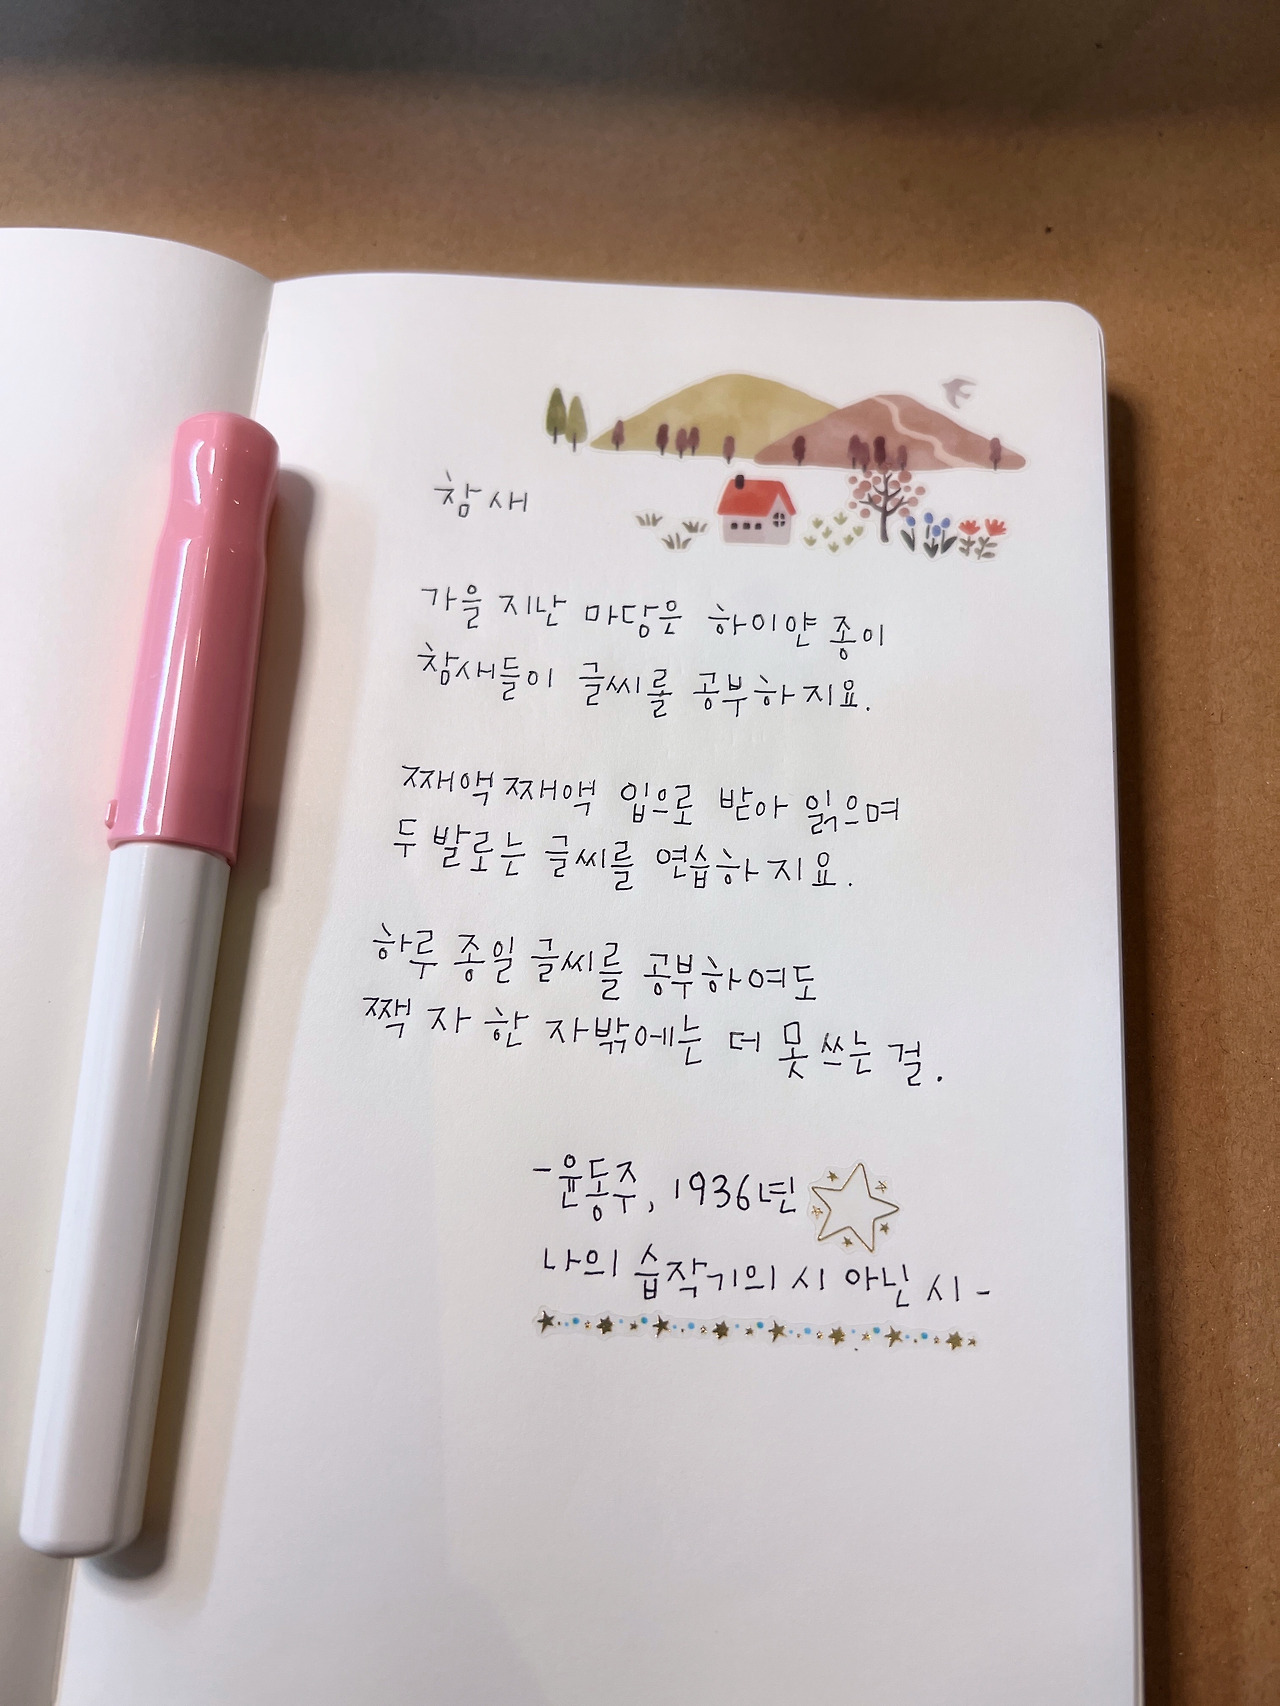 참새
가을 지난 마당은 하이얀 종이
참새들이 글씨를 공부하지요.
째액째액 입으로 받아 읽으며
두 발로는 글씨를 연습하지요.
하루 종일 글씨를 공부하여도
짹 자 한 자밖에는 더 못 쓰는 걸.
-윤동주, 1936년
나의 습작기의 시 아닌 시-